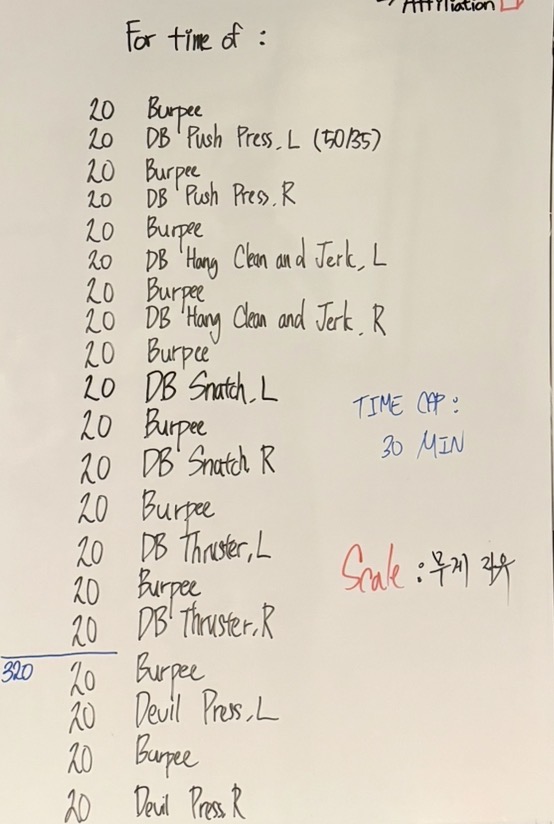 Affiliation
For time of :
20 Burpee
20 DB Push Press, L (50/35)
20 Burpee
20 DB Push Press, R
20 Burpee
20 DB Hang Clean and Jerk, L
20 Burpee
20 DB Hang Clean and Jerk, R
20 Burpee
20 DB Snatch, L
20 Burpee
20 DB Snatch R
20 Burpee
20 DB Thruster, L
20 Burpee
20 DB Thruster, R
320
20 Burpee
20 Devil Press, L
20 Burpee
20 Devil Press, R
TIME CAP :
30 MIN
Scale : 무게 자유